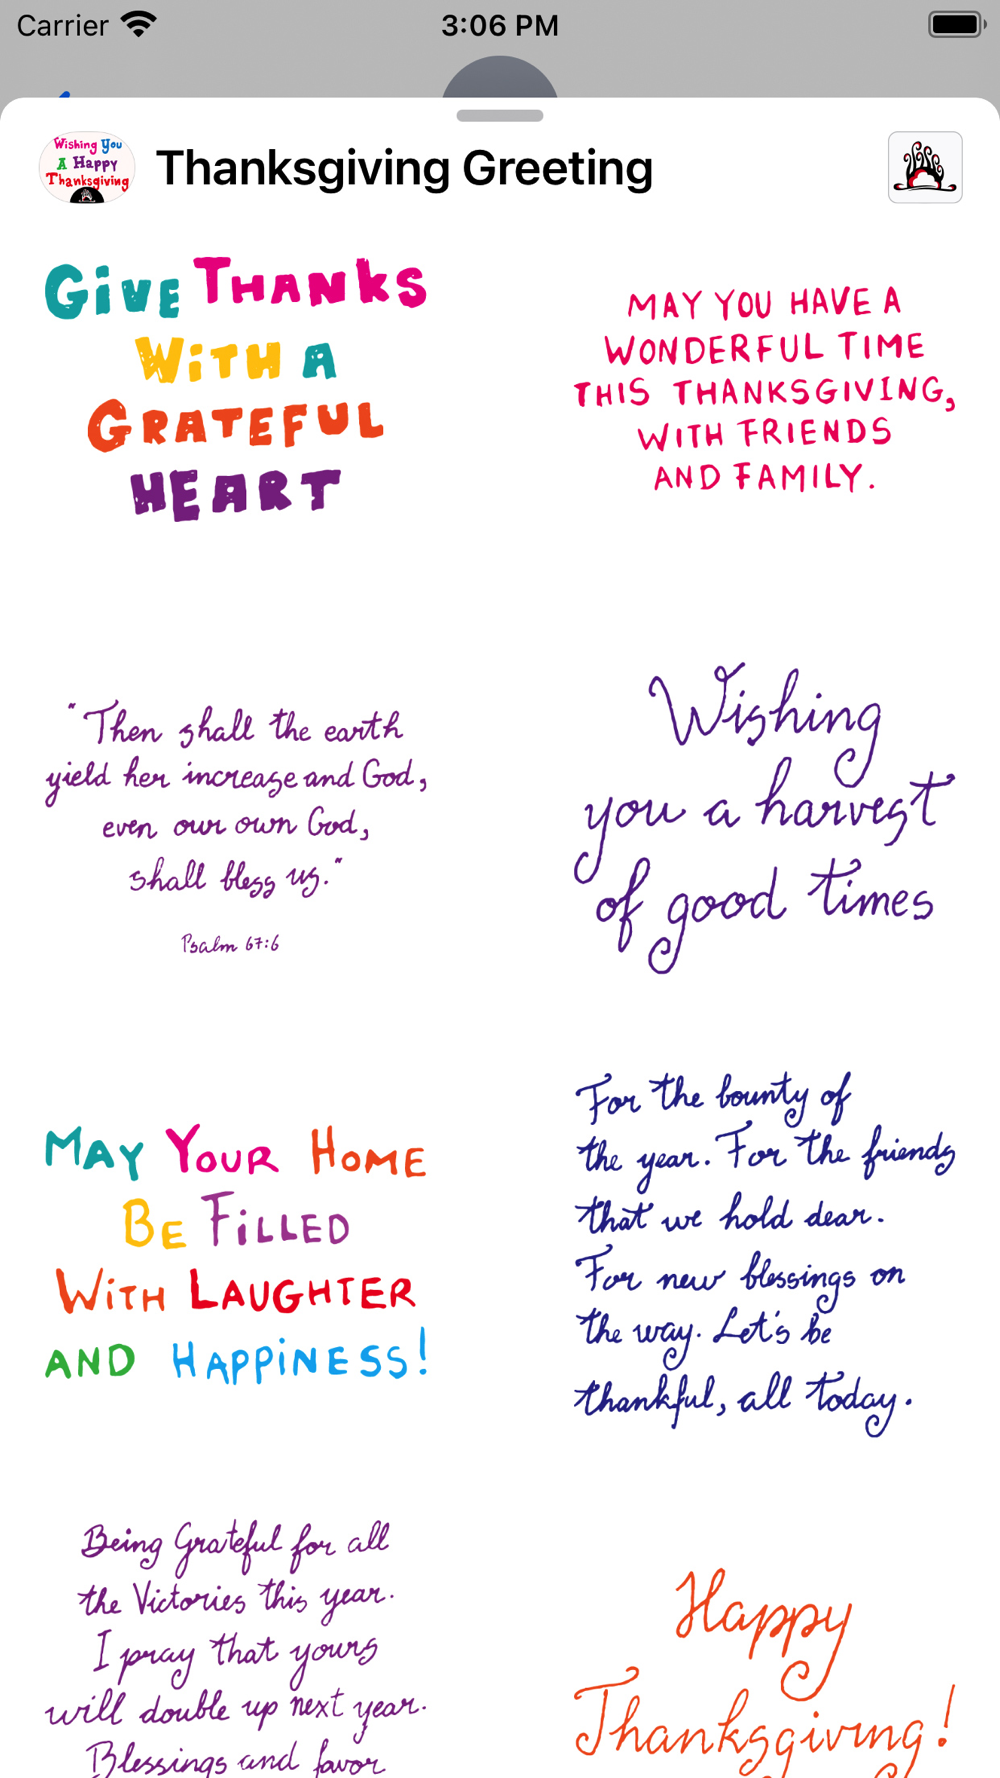 Carrier 3:06 PM
Wishing You
A Happy
Thanksgiving
Thanksgiving Greeting
GiVE THANKS
WiTH A
GRATEFUL
HEART
MAY YOU HAVE A
WONDERFUL TIME
THIS THANKSGIVING,
WITH FRIENDS
AND FAMILY.
"Then shall the earth
yield her increase and God,
even our own God,
shall bless us."
Psalm 67:6
Wishing
you a harvest
of good times
MAY YOUR HOME
BE FiLLED
WiTH LAUGHTER
AND HAPPiNESS!
For the bounty of
the year. For the friends
that we hold dear.
For new blessings on
the way. Let's be
thankful, all today.
Being Grateful for all
the Victories this year.
I pray that yours
will double up next year.
Blessings and favor
Happy
Thanksgiving!